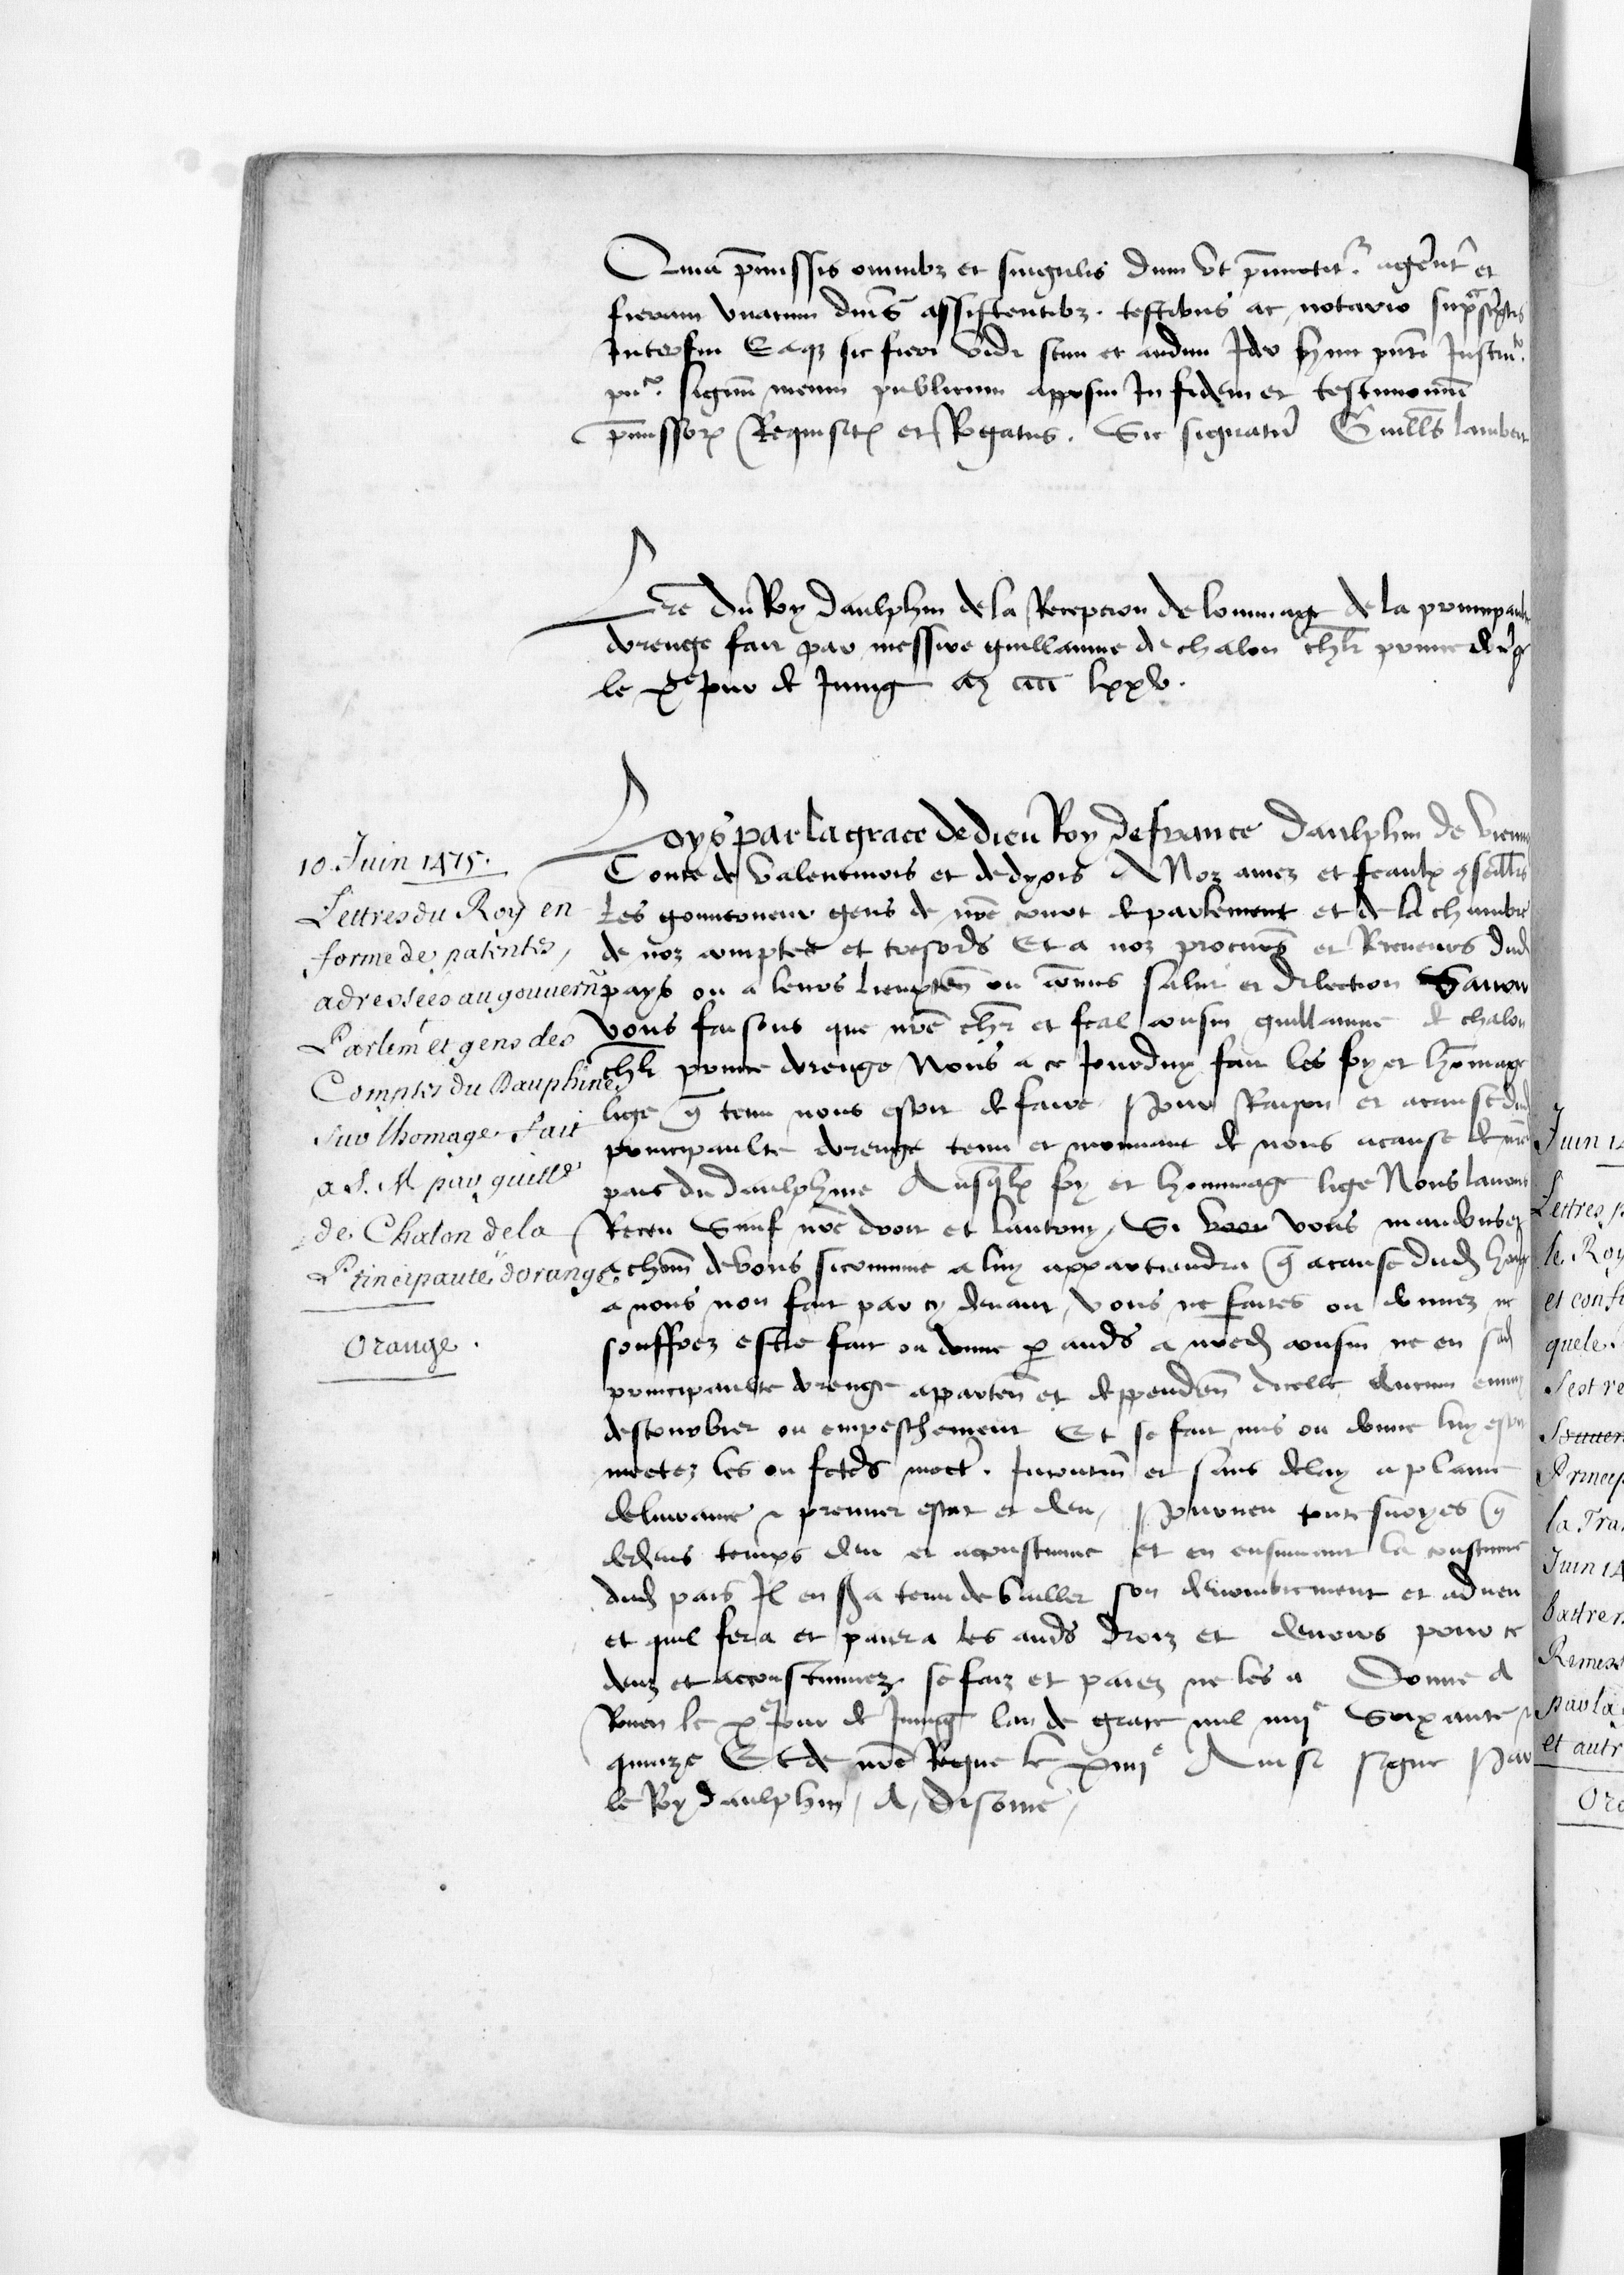 Quia premissis omnibz et singulis dum ut premictitr agerentr et
fierent unacum dnis assistentibz testibus ac notario suprascriptis
Interfui Eaqz sic fieri vidi scivi et audivi Ideo huic pnti Instrumto
puco signum meum publicum apposui In fidem et testimonium
premissorum Requisitus et Rogatus. Sic signatur Guillms lambert
Lre du Roy daulphin de la Recepcion de lommage de la principaulte
dorenge fait par messire guillaume de chalon chlr prince dorenge
le xe jour de Juing lxxv.
Loys par la grace de dieu Roy de france daulphin de viennois
Conte de valentinois et de dyois A Noz amez et feaulx conseillrs
les gouverneur gens de nre court de parlement et de la chambre
de noz comptes et tresors Et a noz procurs et Receveurs dud
pays ou a leurs lieuxten ou commis salut et dilection Savoir
vous faisons que nre chr et feal cousin guillaume de chalon
chlr prince dorenge Nous a ce Jourduy fait les foy et homage
lige que tenu nous estoit de faire pour Raison et acause dud
principaulte dorenge tenu et mouvant de nous acause de nre
pais du daulphine Ausquelx foy et hommage lige Nous lavons
Receu Sauf nre droit et lautruy Si vous mandons et
a chun de vous sicomme a luy appartiendra que acause dud homage
a nous non fait par cy devant vous ne faites ou donnez ne
souffrez estre fait ou donne a nred cousin ne en sad
principaulte dorenge apparten et deppenden dicelle aucun ennuy
destourbier ou empeschement Et se fait mis ou donne luy estoit
mectez les ou fetes mectre Incontinent et sans delay a plaine
delivrance premier estat et deu pourveu toutesvoyes que
dedens temps deu et acoustume et en ensuivant la coustume
dud pais Il en sera tenu de bailler son denombrement et adveu
et quil fera et paiera les autres droiz et devoirs pour ce
deuz et acoustumez se faiz et paiez ne les a Donne a
Rouen le xe Jour de Juing lan de grace mil iiiic Soixante et
quinze Et de nre Regne le xiiiie Ainsi signe Par
le Roy daulphin A. disome
10. Juin 1475.
Lettres du Roy en
forme de patentes,
adressées au gouvernr
Parlemt et gens des
Comptes du Dauphiné
Sur lhomage fait
a S. M par guille
de Chalon de la
Principauté dorange.
Orange.
Juin 14
Lettres p
le Roy
et confi
quele
Sest re
Souver
Princip
la Fra
Juin 14
battre
Remess
par la
et autr
Ora